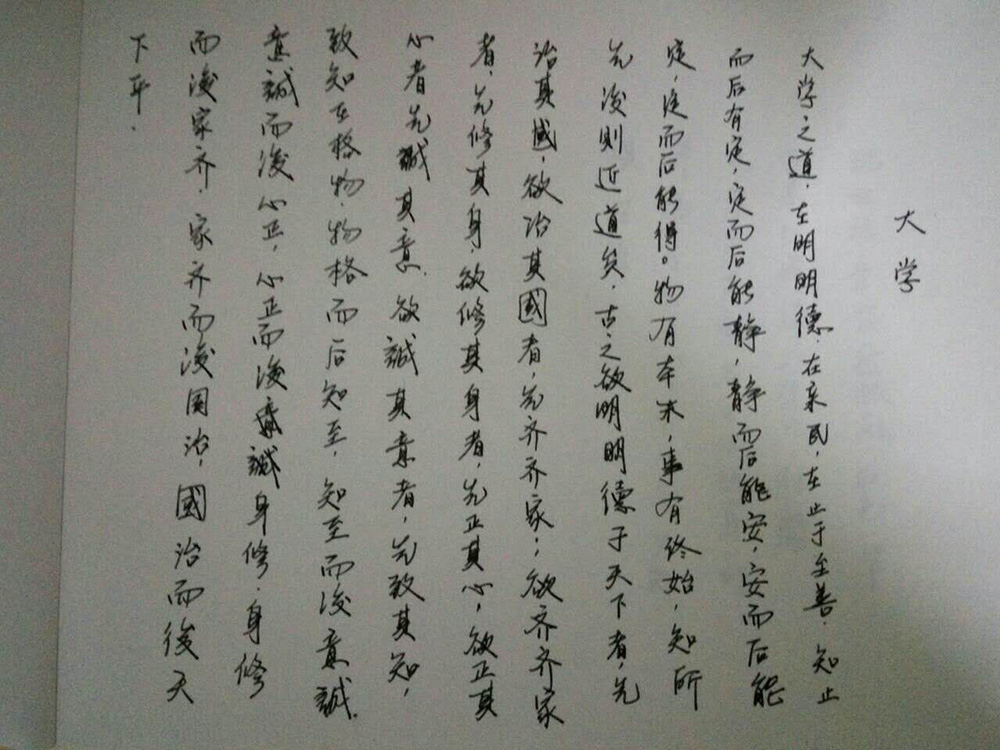 大学
大学之道，在明明德，在亲民，在止于至善，知止
而后有定，定而后能静，静而后能安，安而后能
定，定而后能得。物有本末，事有终始，知所
先後则近道矣，古之欲明明德于天下者，先
治其國，欲治其國者，先齐齐家，欲齐齐家
者，先修其身，欲修其身者，先正其心，欲正其
心者先誠其意，欲誠其意者，先致其知，
致知在格物，物格而后知至，知至而後意誠，
意誠而後心正，心正而後意誠身修，身修
而後家齐，家齐而後国治，國治而後天
下平。